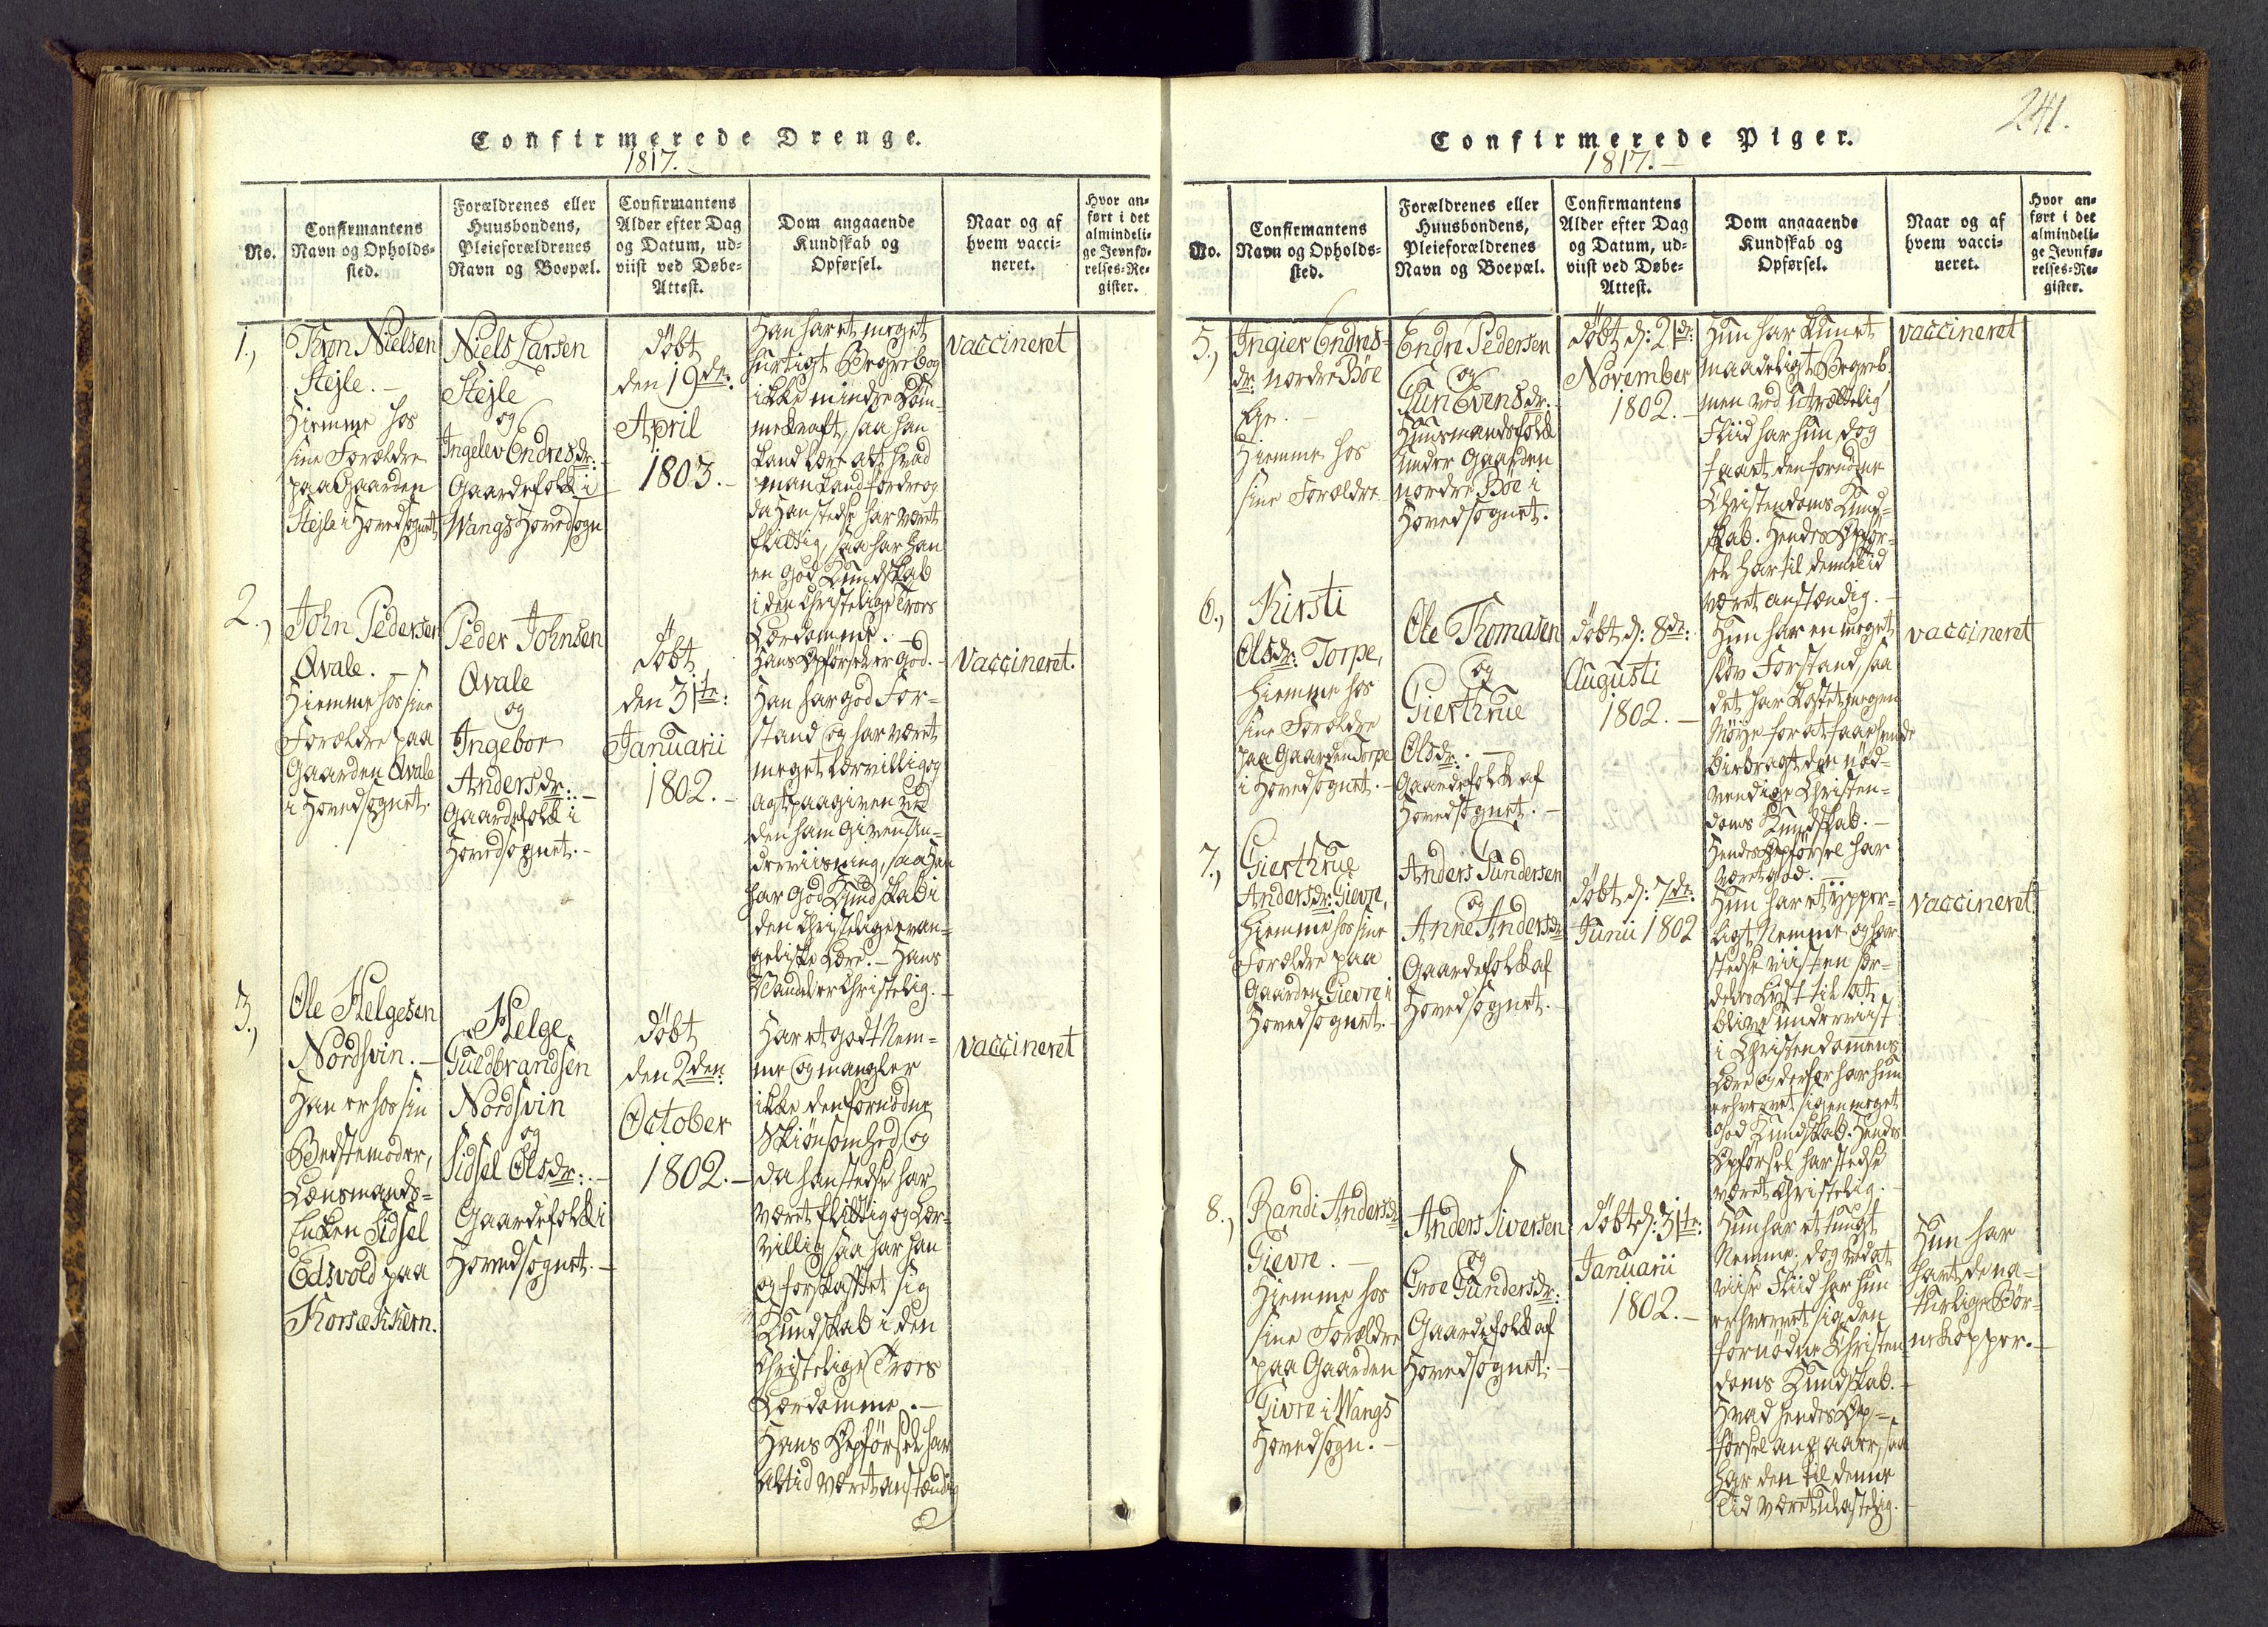 Confirmerede Drenge.
1817.
No.
Confirmantens
Navn og Opholds-
sted.
Forældrenes eller
Huusbondens,
Pleieforældrenes
Navn og Boepæl.
Confirmantens
Alder efter Dag
og Datum, ud-
viist ved Døbe-
Attest.
Dom angaaende
Kundskab og
Opførsel.
Naar og af
hvem vacci-
neret.
Hvor an-
ført i det
almindeli-
ge Jevnfø-
relses-Re-
gister.
1.,
Tron Nielsen
Stejle. -
Hiemme hos
sine Forældre
paa Gaarden
Stejle i Hovedsognet
Niels Larsen
Stejle
og
Ingelev Endresdr:
Gaardefolk i
Wangs Hovedsogn
döbt
den 19de:
April
1803. -
Han har et meget
hurtigt Begreb og
ikke mindre Döm-
mekraft, saa han
kand lære alt hvad
man kand fordre og
da Han stedse har været
flittig, saa har Han
en god Kundskab
i den Christelige Troes
Lærdomme. -
Hans Opförsel er god. -
vaccineret
2.,
John Pedersen
Qvale. -
Hiemme hos sine
Forældre paa
Gaarden Qvale
i Hovedsognet.
Peder Johnsen
Qvale
og
Ingebor
Andersdr: -
Gaardefolk i
Hovedsognet. -
döbt
den 31te:
Januarii
1802. -
Han har god For-
stand og har været
meget lærvillig og
agtpaagiven ved
den ham given Un-
derviisning, saa Han
har god Kundskab i
den Christelige evan-
geliske Lære. - Hans
Vandel er Christelig. -
Vaccineret.
3.,
Ole Helgesen
Nordsvin. -
Han er hos sin
Bedstemoder,
Lænsmands-
Enken Sidsel
Edsvold paa
Korsækkern.
Helge
Guldbrandsen
Nordsvin
og
Sidsel Olsdr: -
Gaardefolk i
Hovedsognet. -
döbt
den 2den:
October
1802. -
Har et godt Nem-
me og mangler
ikke den fornødne
Skiönsomhed, og
da han stedse har
været flittig og lær-
villig saa har han
og forskaffet sig
Kundskab i den
Christelige Troes
Lærdomme. -
Hans Opförsel har
altid været anstændig
vaccineret
241.
Confirmerede Piger.
1817. -
No.
Confirmantens
Navn og Opholds-
sted.
Forældrenes eller
Huusbondens,
Pleieforældrenes
Navn og Boepæl.
Confirmantens
Alder efter Dag
og Datum, ud-
viist ved Døbe-
Attest.
Dom angaaende
Kundskab og
Opførsel.
Naar og af
hvem vacci-
neret.
Hvor an-
ført i det
almindeli-
ge Jevnfø-
relses-Re-
gister.
5.,
Ingier Endres-
dr: nordre Böe
Eje. -
Hiemme hos
sine Forældre
Endre Pedersen
og
Gun Evensdr:
Huusmandsfolk
under Gaarden
nordre Böe i
Hovedsognet.
Döbt d: 21de:
November
1802. -
Hun har kun et
maadeligt Begreb
men ved utrættelig
Fliid har hun dog
faaet den fornødne
Christendoms Kund-
skab. Hendes Opför-
sel har til denne Tid
været anstændig. -
vaccineret
6.,
Kirsti
Olsdr: Torpe,
hiemme hos
sine Forældre
paa Gaarden Torpe
i Hovedsognet. -
Ole Thomasen
og
Giertrue
Olsdr: -
Gaardefolk af
Hovedsognet. -
döbt d: 8de:
Augusti
1802. -
Hun har en meget
slöv Forstand, saa
det har kostet megen
Möye for at faae hende
bibragt den nöd-
vendige Christen-
doms Kundskab. -
Hendes Opförsel har
været god. -
vaccineret
7.,
Giertrue
Andersdr: Gievre,
hiemme hos sine
Forældre paa
Gaarden Gievre i
Hovedsognet.
Anders Gundersen
og
Anne Andersdr
Gaardefolk af
Hovedsognet.
döbt d: 7de:
Junii 1802
Hun har et ypper-
ligt Nemme og har
stedse viist en sær-
deles Lyst til at
blive underviist
i Christendommens
Lære og derfor har hun
erhvervet sig en meget
god Kundskab. Hendes
Opförsel har stedse
været Christelig. -
vaccineret
8.,
Randi Andersdr
Gievre. -
Hiemme hos
sine Forældre
paa Gaarden
Givre i Wangs
Hovedsogn. -
Anders Iversen
og
Groe Gundersdr:
Gaardefolk af
Hovedsognet. -
Döbt d: 31te:
Januarii
1802. -
Hun har et tungt
Nemme; dog ved at
viise Fliid har hun
erhvervet sig den
fornødne Christen-
doms Kundskab. -
Hvad hendes Op-
försel angaaer, saa
har den til denne
Tid været ulastelig. -
Hun har
havt de na-
turlige Bör-
nekopper. -